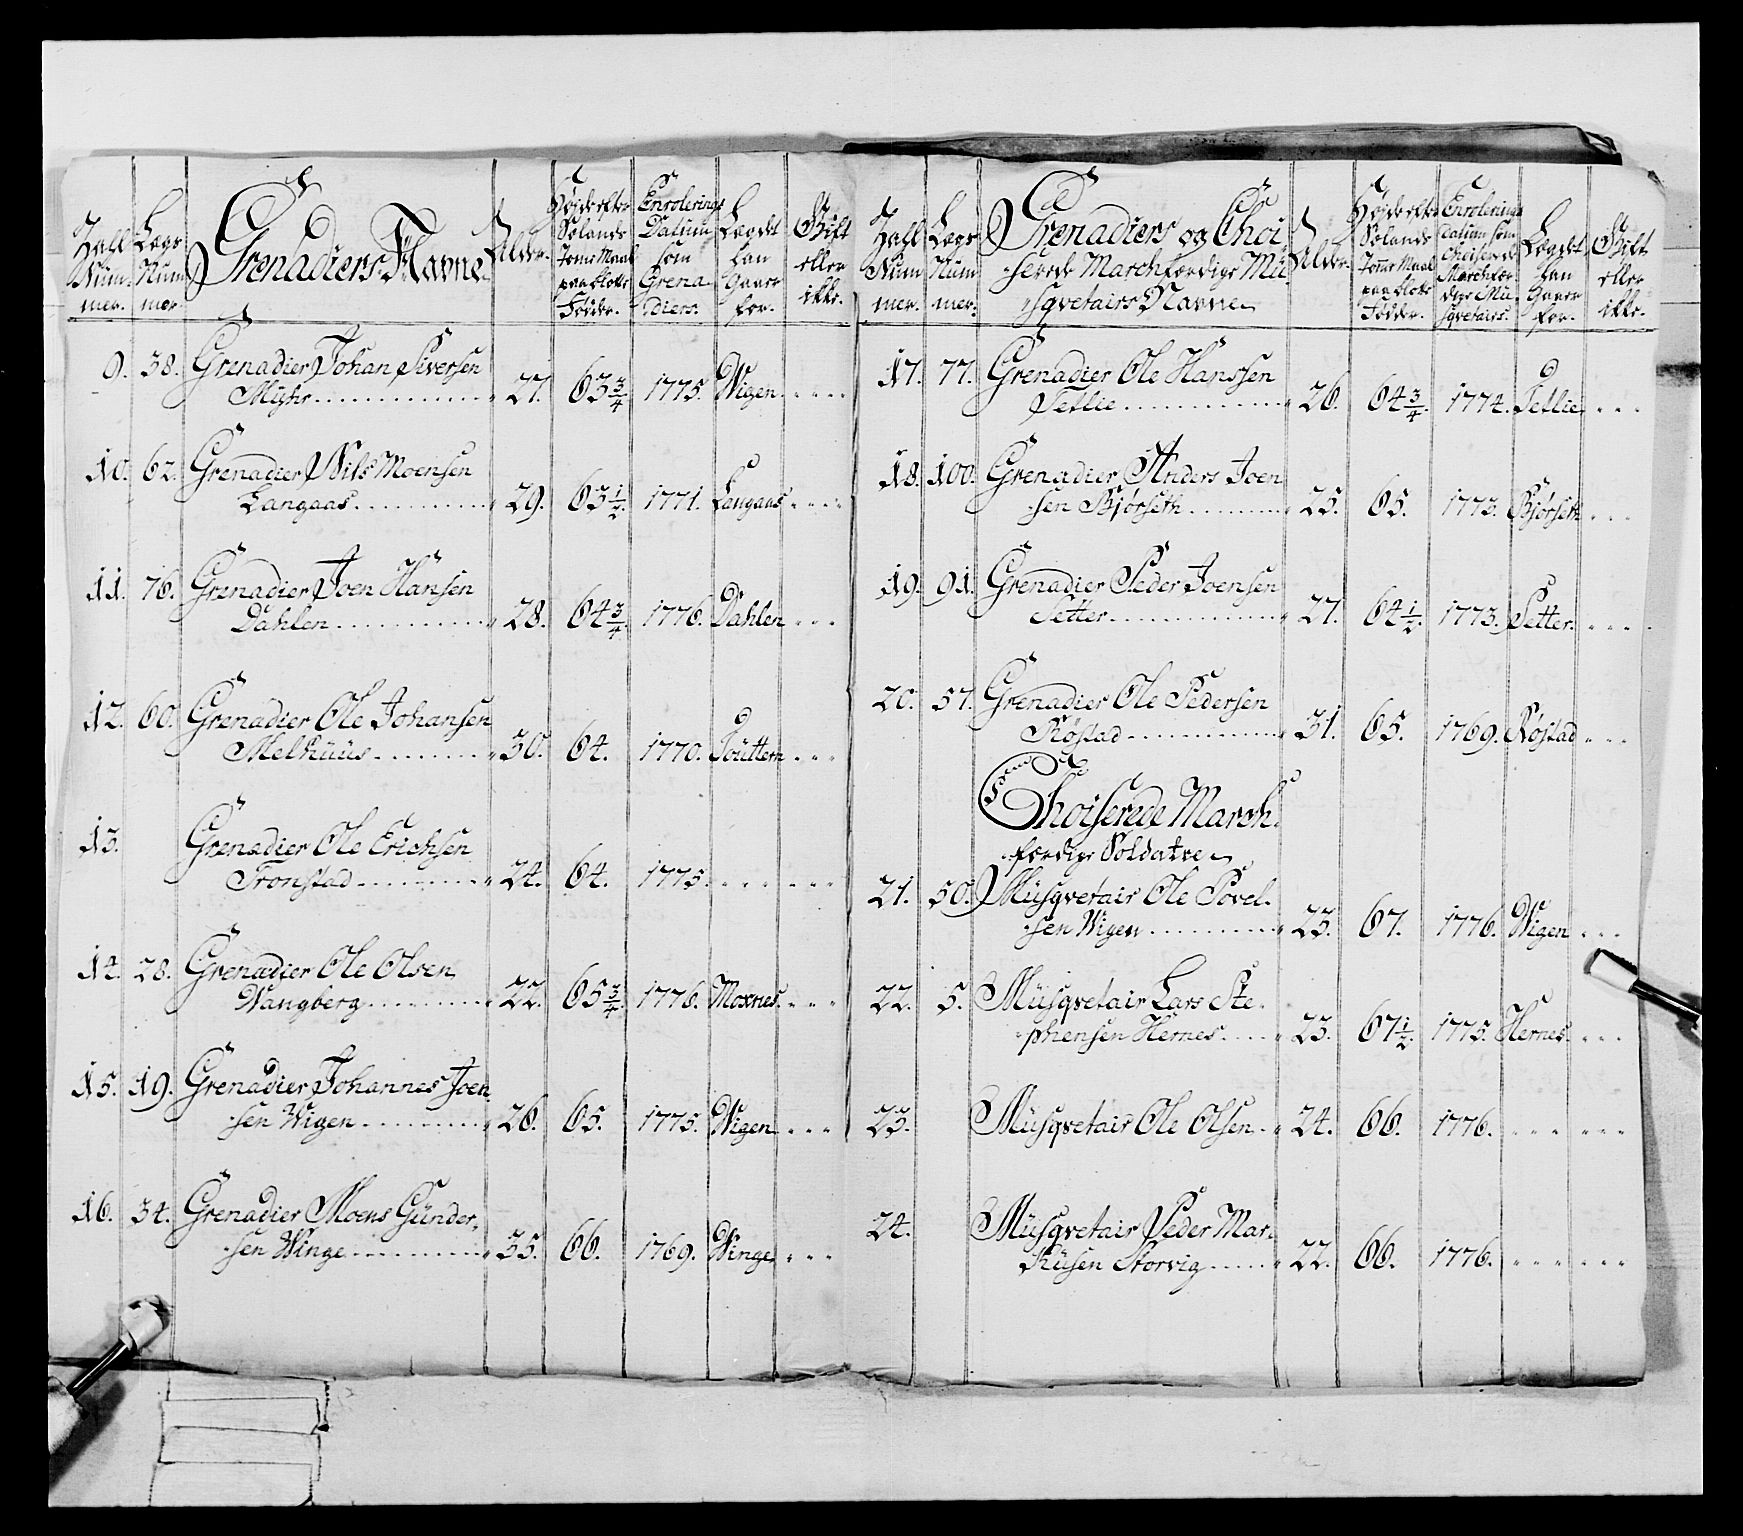 Tall Num- mer.
Lægs Num mer.
Grenadiers Navne
Alder.
Højde efter Sælands Tomme Maal paa blotte Fødder.
Enrolerings Datum som Grena- diers.
Lægdet han gaaer for.
Gift eller ikke.
9. 38. Grenadier Johan Siversen
Myhr............ 27. 63 3/4 1775. Wigen.....
10. 62. Grenadier Nils Moensen
Langaas........... 29. 63 1/2. 1771. Langaas....
11. 76. Grenadier Joen Hansen
Dahlen........... 28. 64 3/4 1776. Dahlen...
12. 60. Grenadier Ole Johansen
Melhuus....... 30. 64. 1770. ...
13. Grenadier Ole Erichsen
Tronstad......... 24. 64. 1775. .......
14. 28. Grenadier Ole Olsen
Wangberg........ 22. 65 3/4. 1776. Moxnes...
15. 19. Grenadier Johannes Joen
sen Wigen........ 26. 65. 1775. Wigen...
16. 34. Grenadier Moens Gunder-
sen Winge......... 35. 66. 1769. Winge...
Tall Num mer.
Lægs Num mer.
Grenadiers og Choi-
serede Marchfærdige Mu-
sqvetairs Navne
Alder.
Højde efter Sælands Tomme Maal paa blotte Fødder.
Enrolerings Datum som Choiserede Marchfær- dige Mu- sqvetairs.
Lægdet han gaaer for.
Gift eller ikke.
17. 77. Grenadier Ole Hanssen
Tetlie........... 26. 64 3/4. 1774. Tetlie...
18. 100. Grenadier Anders Joen
sen Bjørseth........ 25. 65. 1773. Bjørseth...
19. 91. Grenadier Peder Joensen
Setter............ 27. 64 1/2. 1773. Setter....
20. 57. Grenadier Ole Pedersen
Røstad........... 31. 65. 1769. Røstad...
Choiserede March-
færdige Soldater
21. 50. Musqvetair Ole Povel-
sen Wigen......... 23. 67. 1776. Wigen...
22. 5. Musqvetair Lars Ste-
phensen Hernes.... 23. 67 1/2. 1775. Hernes...
23. Musqvetair Ole Olsen.. 24. 66. 1776. ......
24. Musqvetair Peder Mar-
kusen Storvig..... 22. 66. 1776. ......